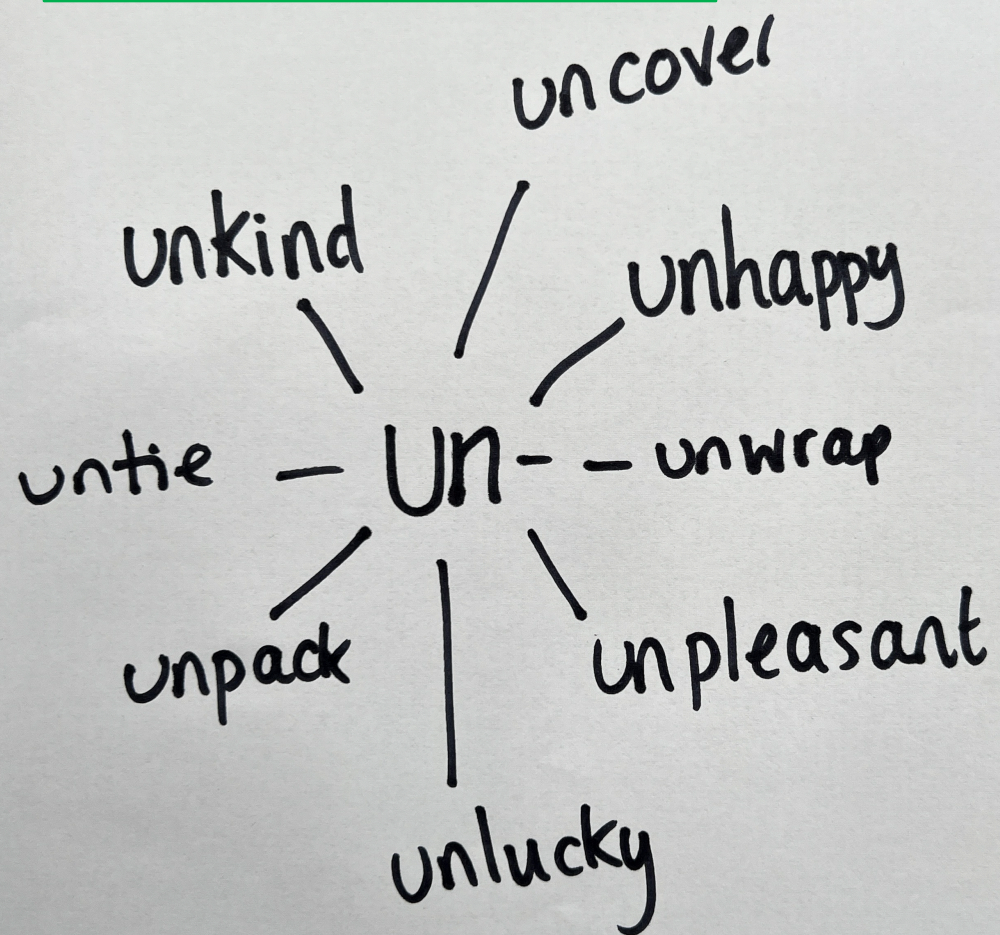 uncover
unkind
unhappy
untie
un-
unwrap
unpack
unpleasant
unlucky